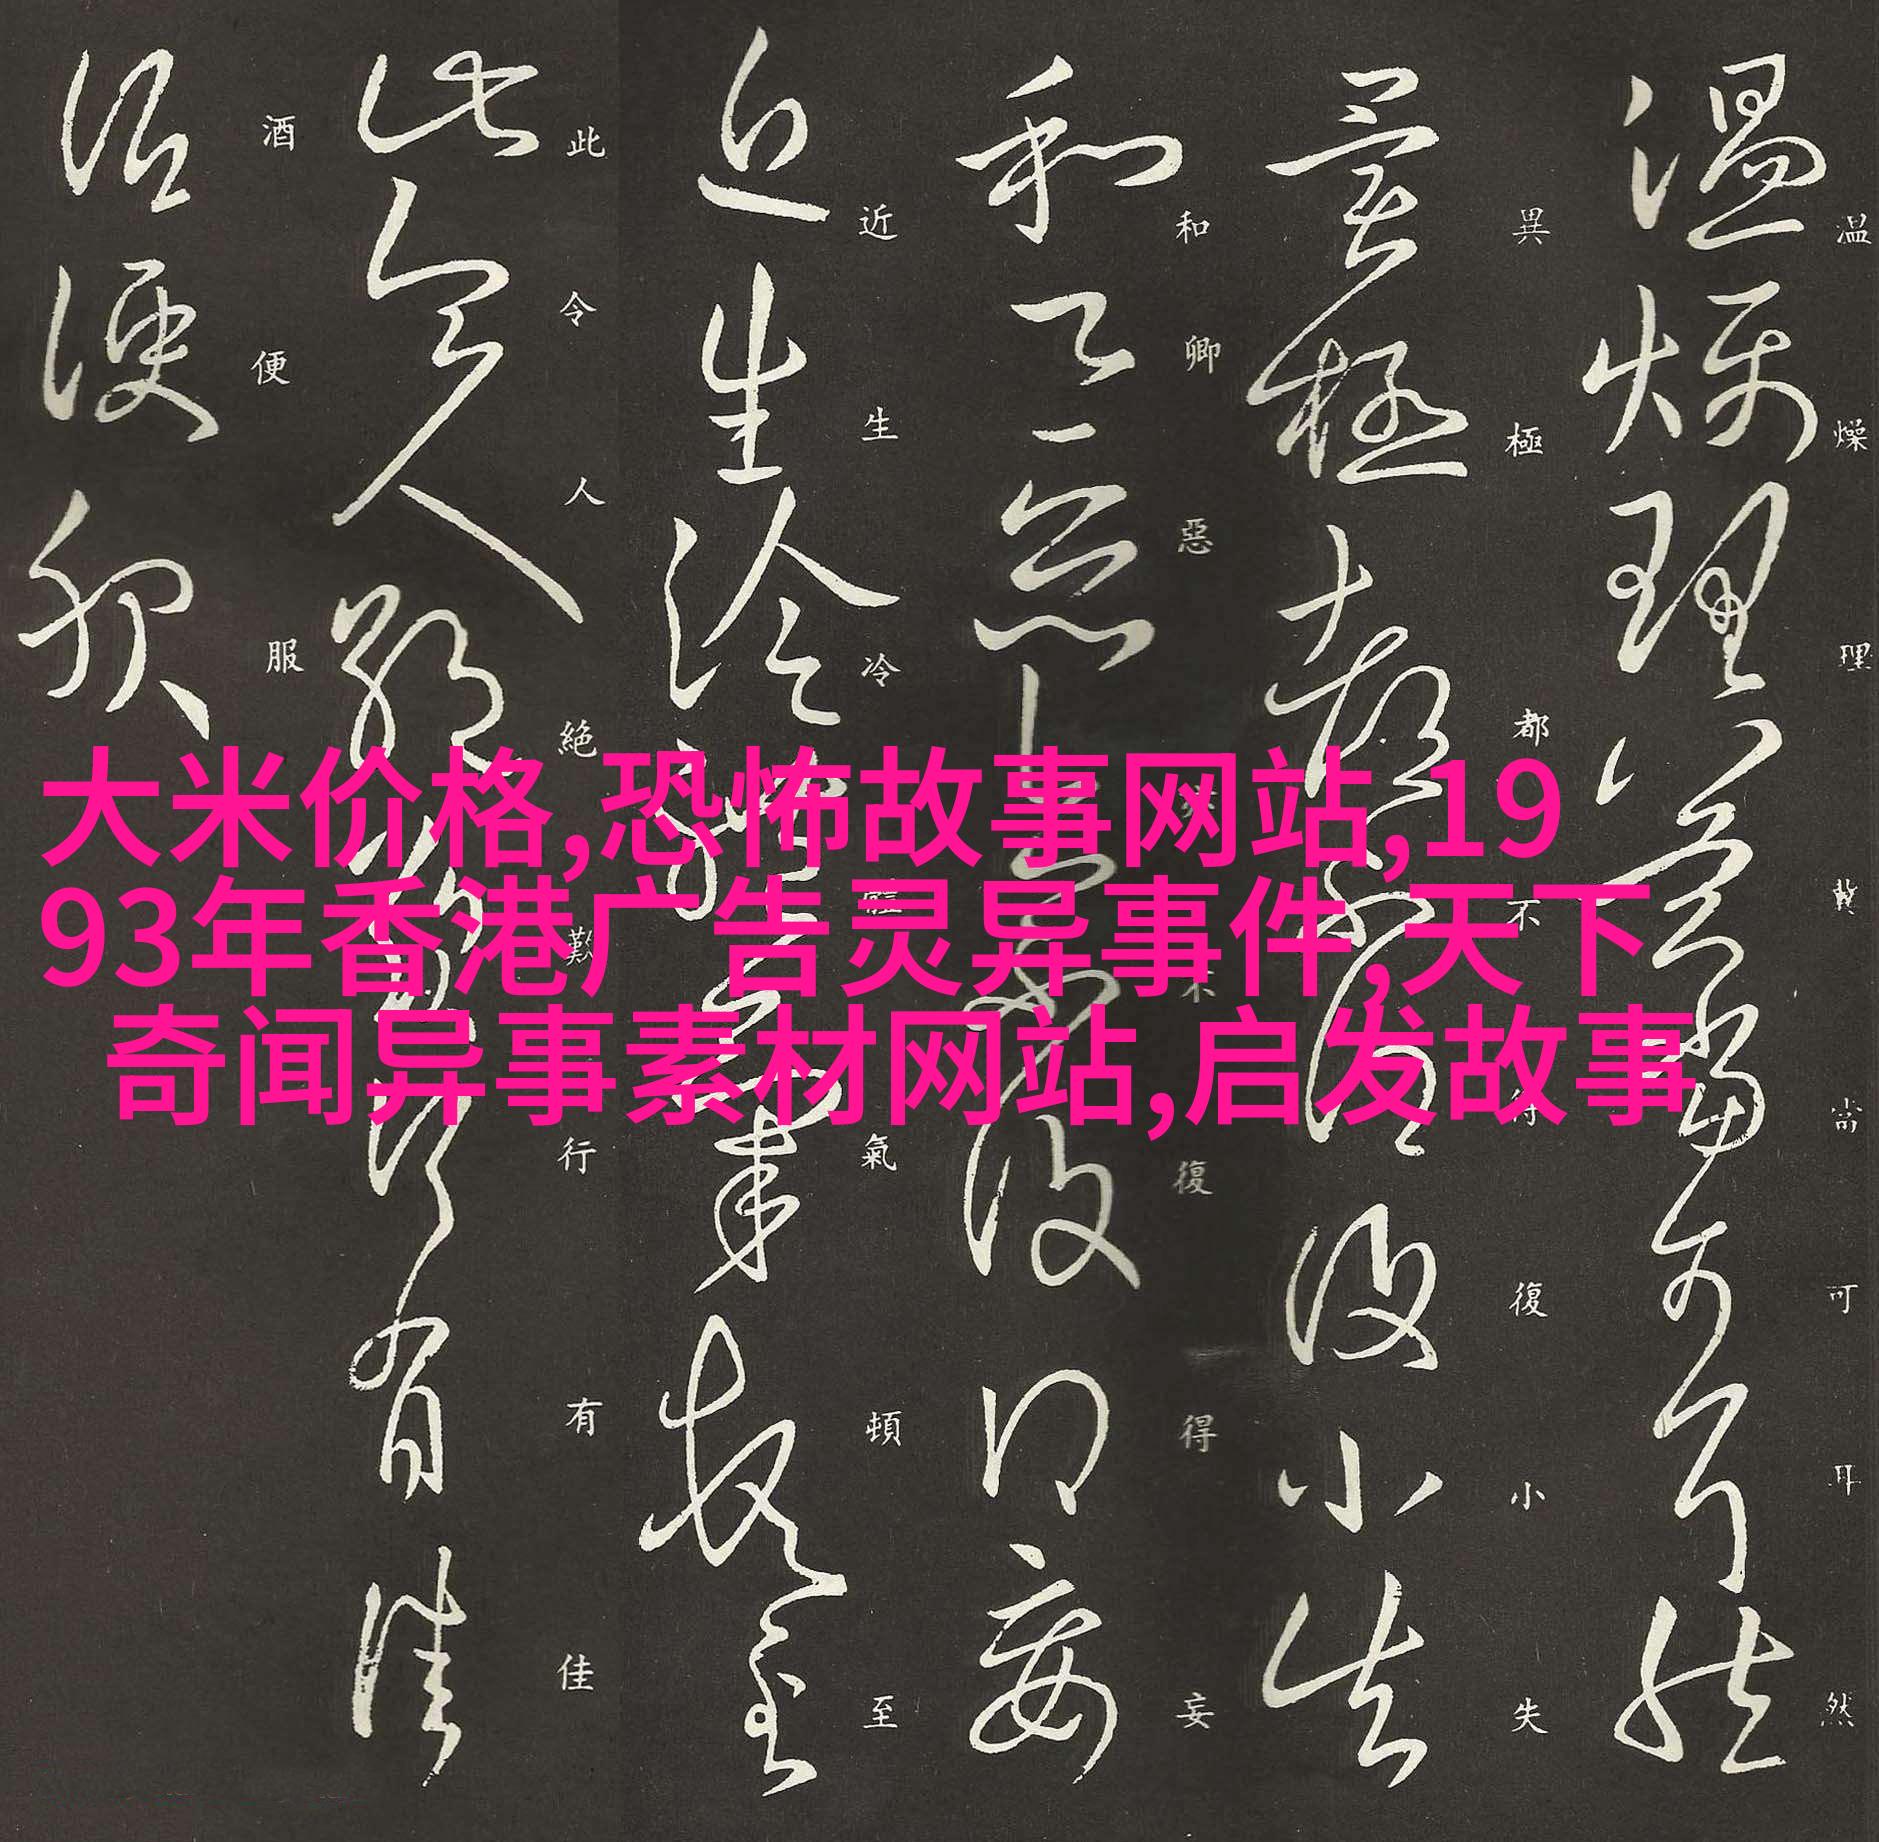 温燥理當可耳然
異極都不得復小失
和卿惡不復得妄
近生冷體氣頓至
此令人絶歎行有佳
酒便服
大米价格,恐怖故事网站,19
93年香港广告灵异事件,天下
奇闻异事素材网站,启发故事